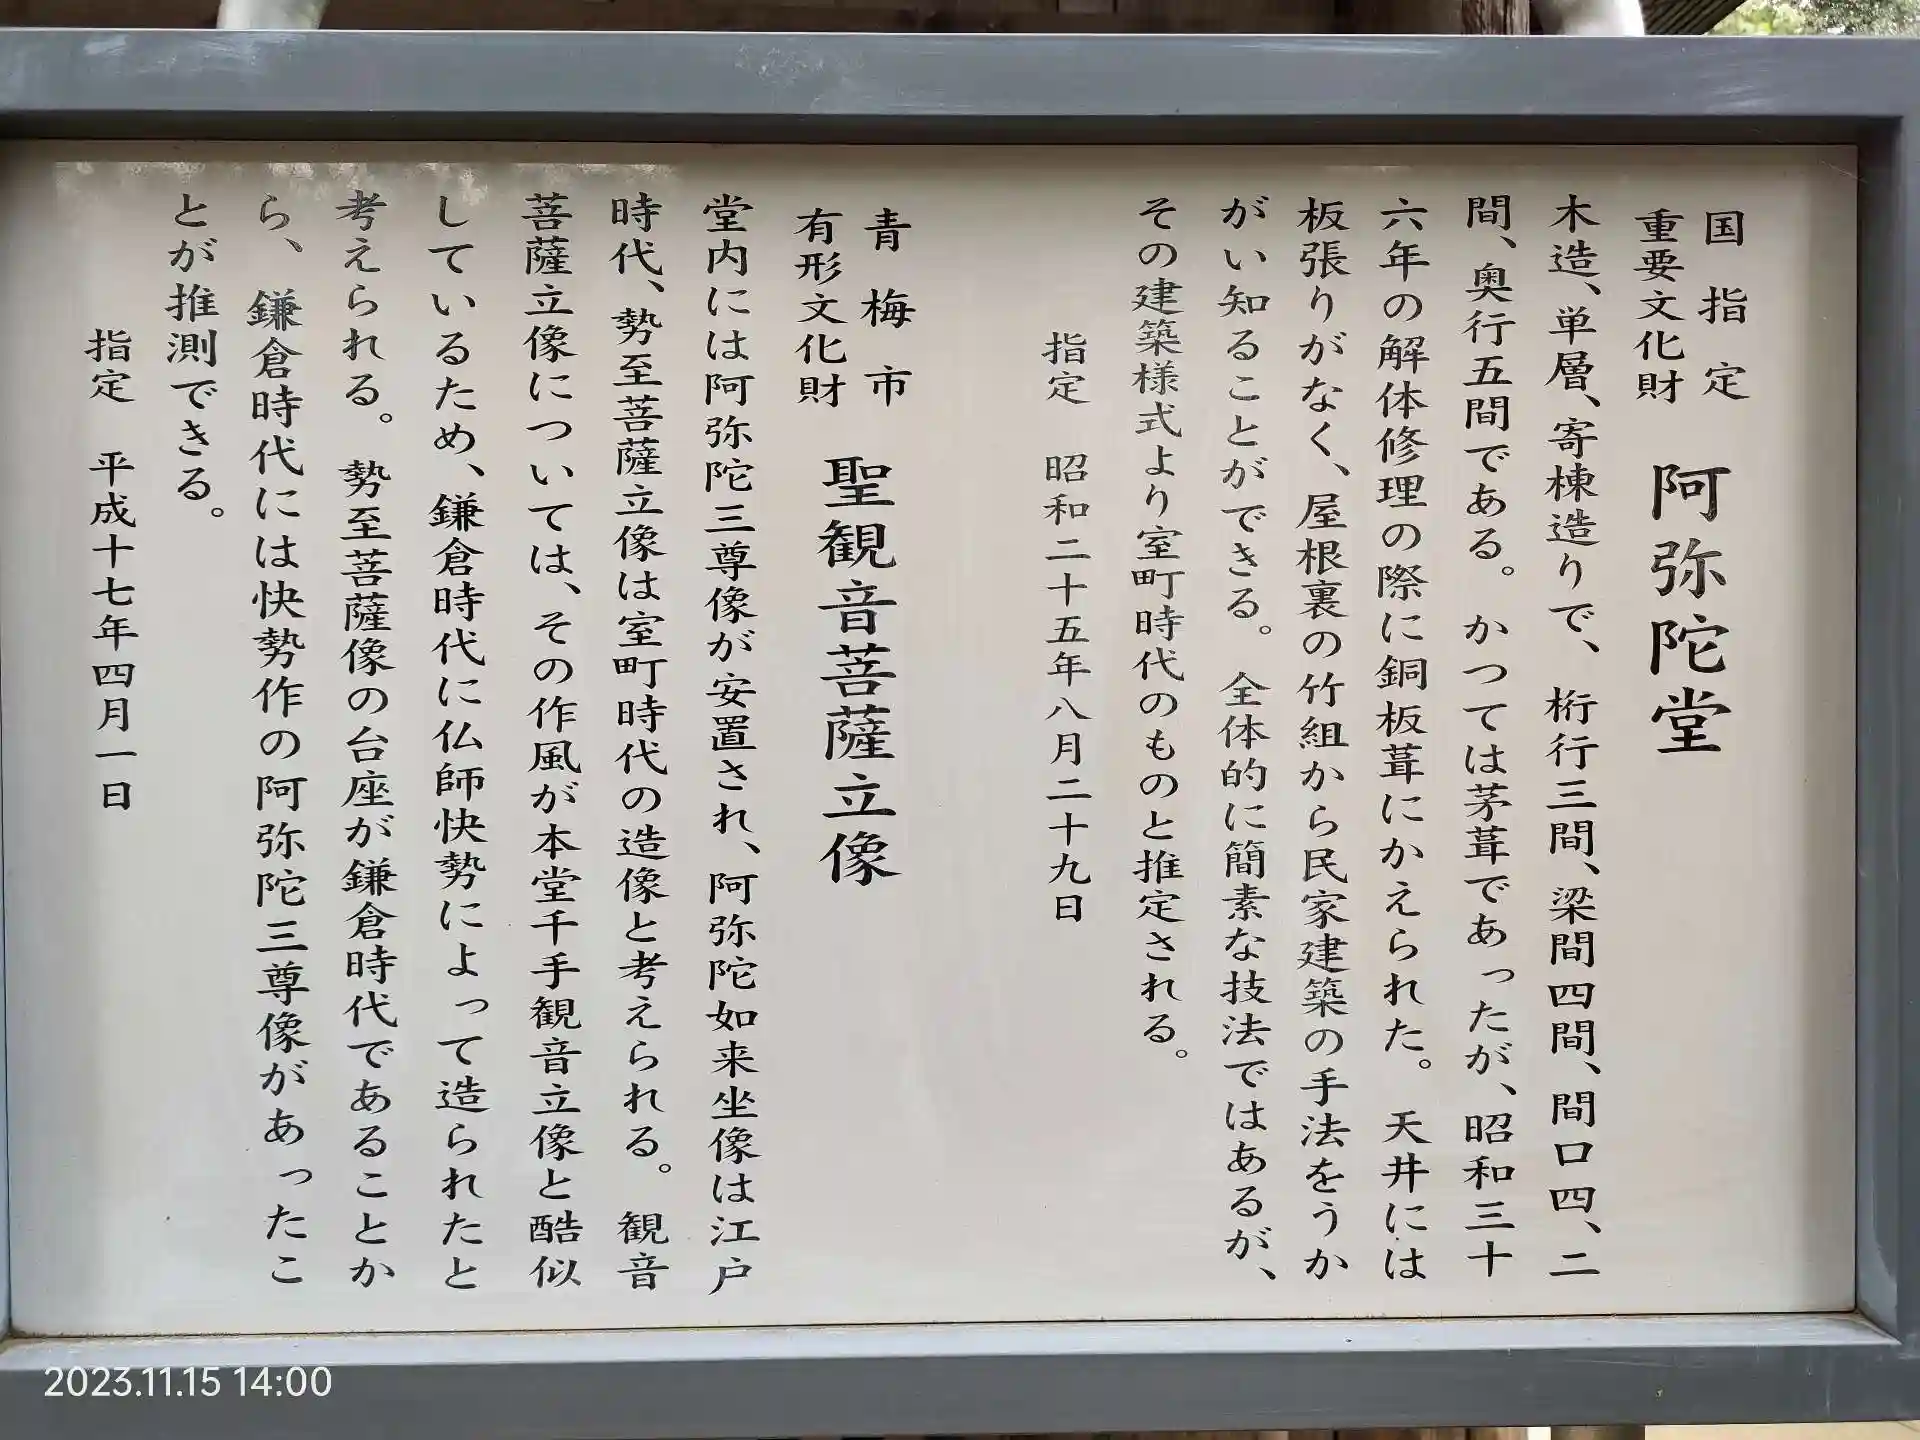 国指定
重要文化財
阿弥陀堂
木造、単層、寄棟造りで、桁行三間、梁間四間、間口四、二
間、奥行五間である。かつては茅葺であったが、昭和三十
六年の解体修理の際に銅板葺にかえられた。天井には
板張りがなく、屋根裏の竹組から民家建築の手法をうか
がい知ることができる。全体的に簡素な技法ではあるが、
その建築様式より室町時代のものと推定される。
指定　昭和二十五年八月二十九日
青梅市
有形文化財
聖観音菩薩立像
堂内には阿弥陀三尊像が安置され、阿弥陀如来坐像は江戸
時代、勢至菩薩立像は室町時代の造像と考えられる。観音
菩薩立像については、その作風が本堂千手観音立像と酷似
しているため、鎌倉時代に仏師快勢によって造られたと
考えられる。勢至菩薩像の台座が鎌倉時代であることか
ら、鎌倉時代には快勢作の阿弥陀三尊像があったこ
とが推測できる。
指定　平成十七年四月一日
2023.11.15 14:00